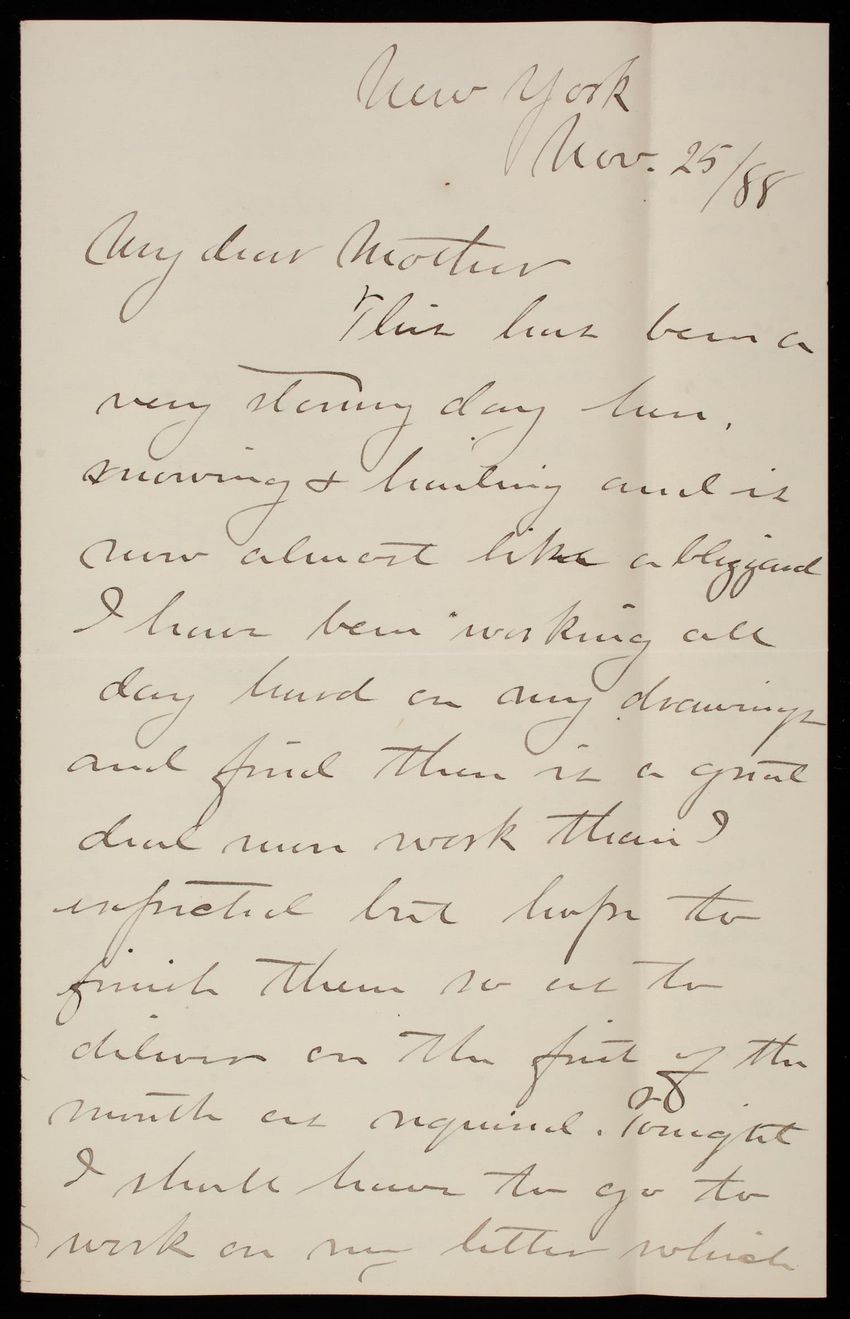 New York
Nov. 25/88
My dear Mother
This has been a
very stormy day here,
snowing & hailing and is
now almost like a blizzard
I have been working all
day hard on my drawings
and find there is a great
deal more work than I
expected but hope to
finish them so as to
deliver on the first of the
month as required. Tonight
I shall have to go to
work on my letter which